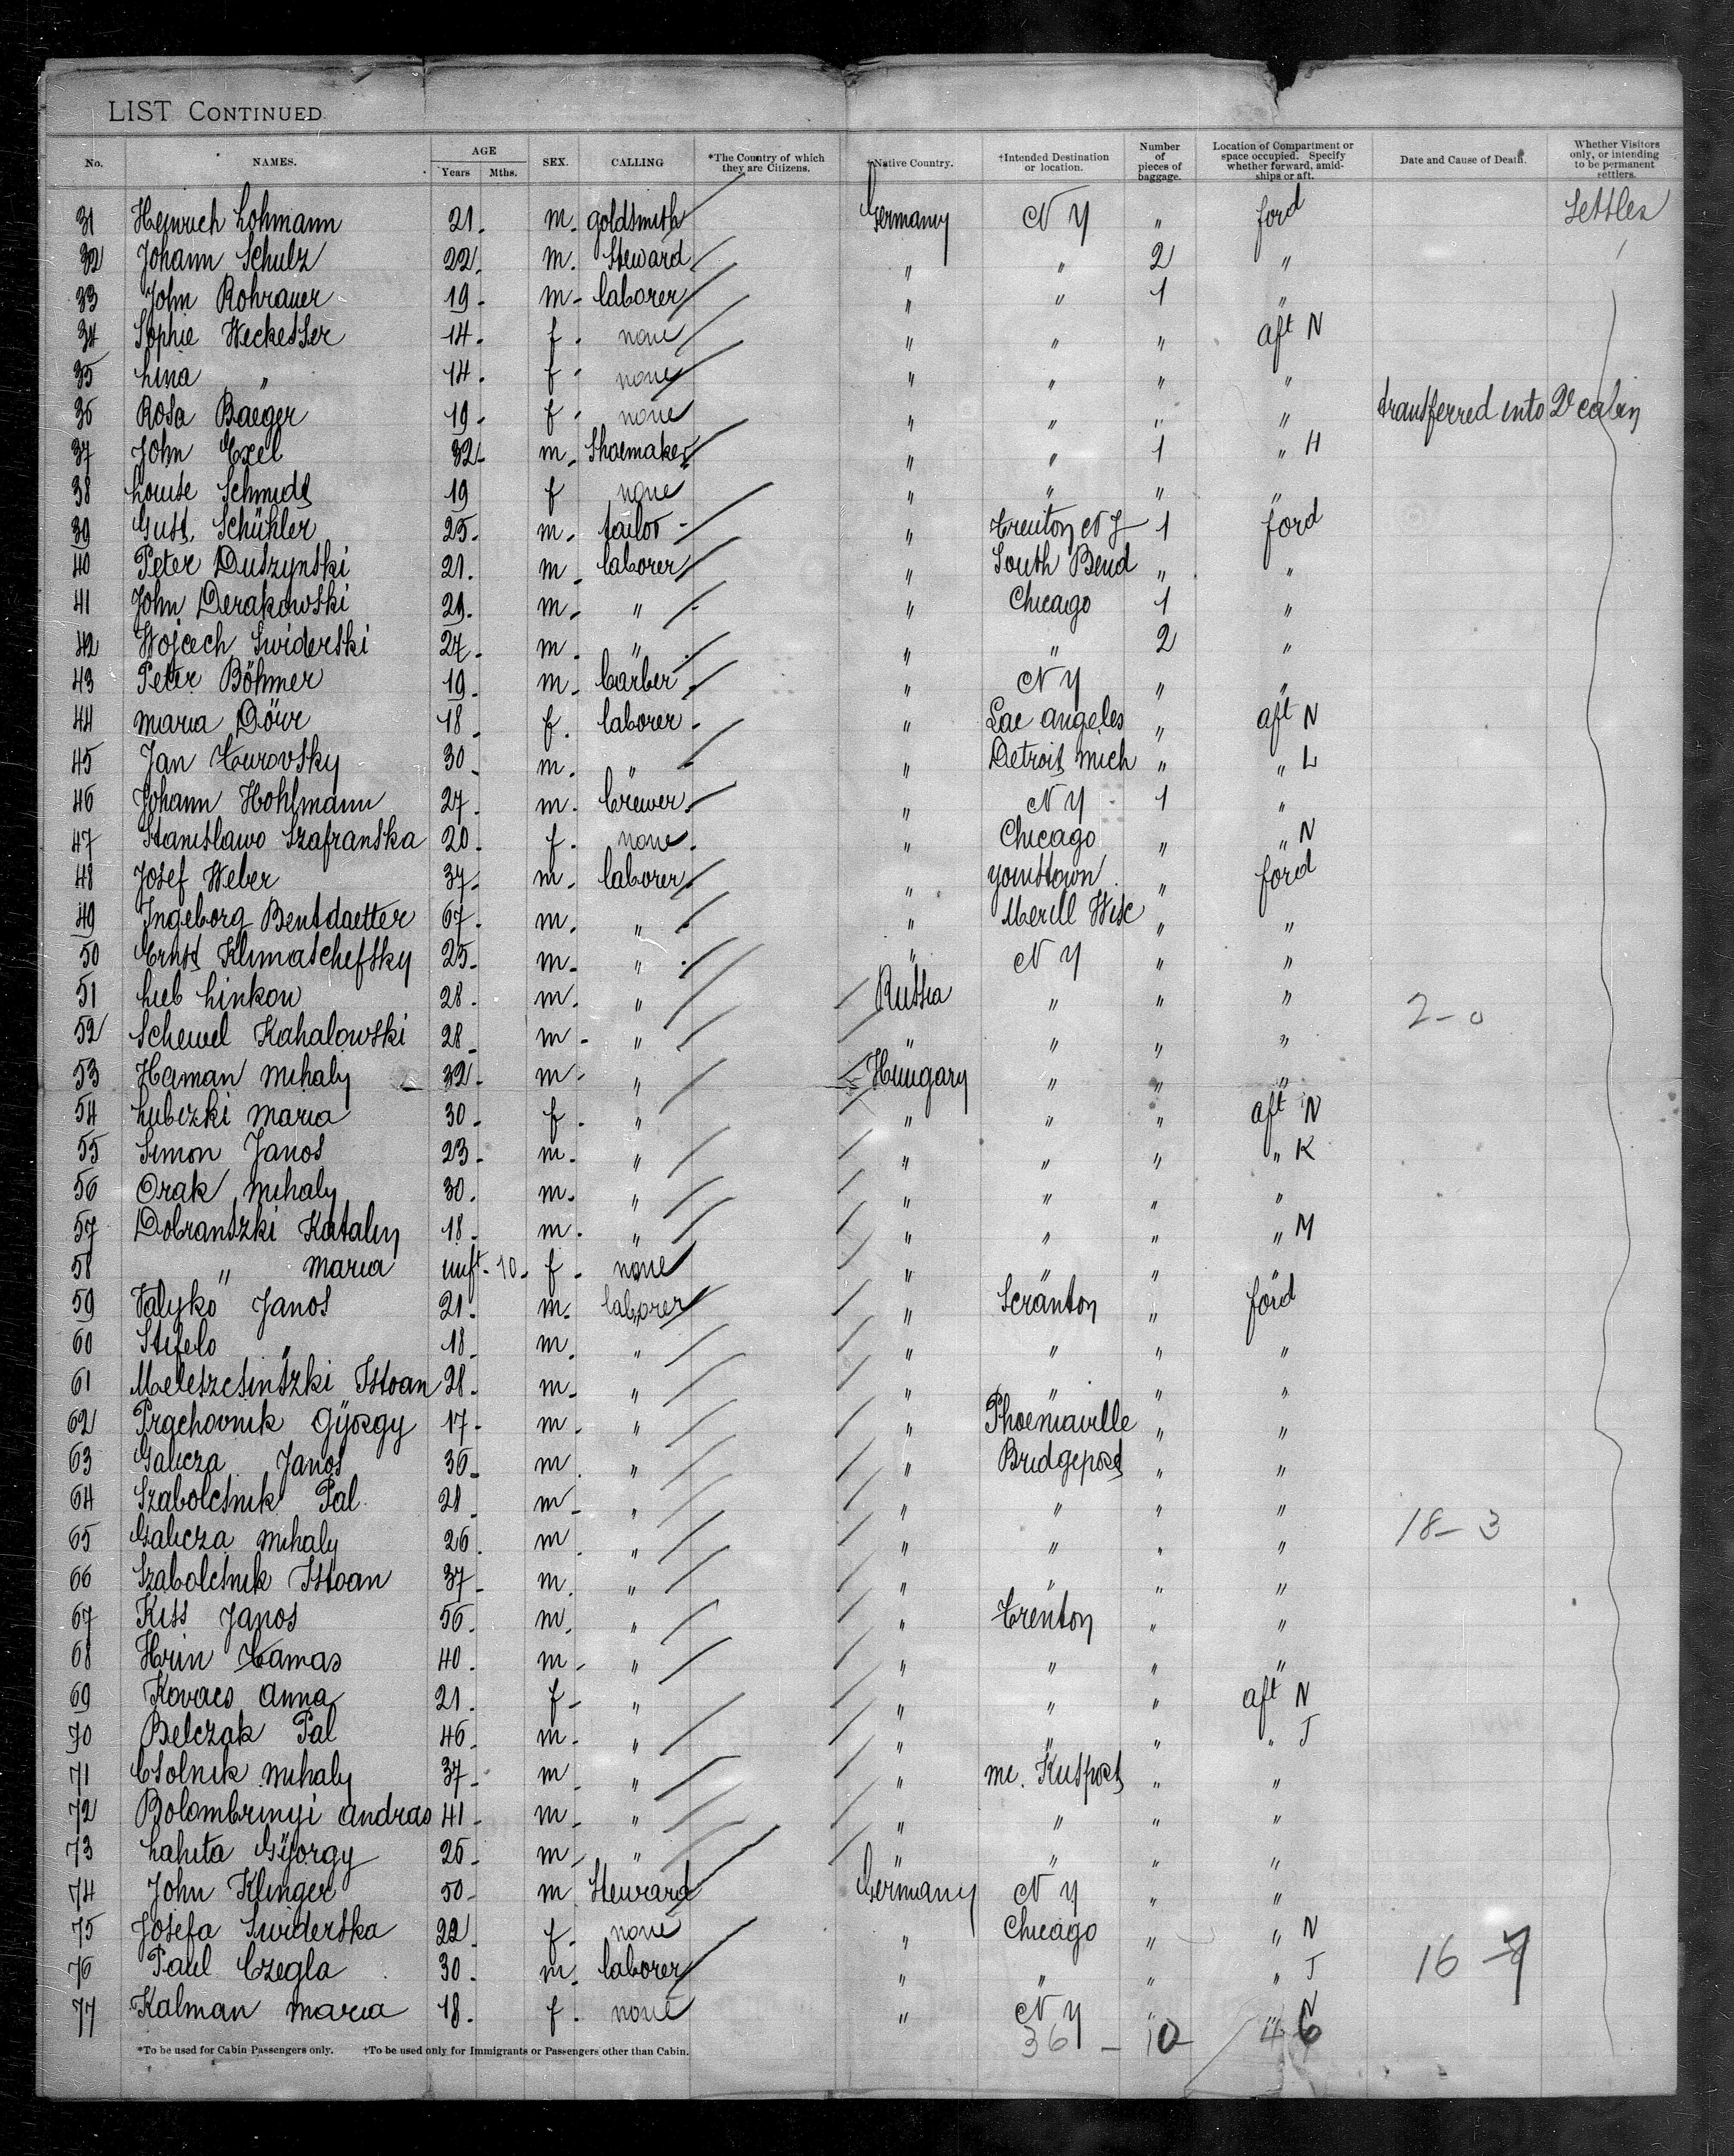 LIST CONTINUED.
No. NAMES. AGE Years Mths. SEX. CALLING *The Country of which they are Citizens. †Native Country. †Intended Destination or location. Number of pieces of baggage. Location of Compartment or space occupied. Specify whether forward, amidships or aft. Date and Cause of Death. Whether Visitors only, or intending to be permanent settlers.
31 Heinrich Lohmann 21. m. goldsmith Germany N Y " ford Settler
32 Johann Schulz 22. m. Steward " " 2 "
33 John Rohrauer 19. m. laborer " " 1 "
34 Sophie Weckesser 14. f. none " " " aft N
35 Lina " 14. f. none " " " "
36 Rosa Baeger 19. f. none " " " " transferred into 2d cabin
37 John Exel 32. m. Shoemaker " " 1 " H
38 Louise Schmidt 19 f none " " " "
39 Gust. Schühler 25. m. tailor " Trenton N J 1 ford
40 Peter Duszynski 21. m. laborer " South Bend " "
41 John Derakowski 29. m. " " Chicago 1 "
42 Wojcech Swiderski 27. m. " " " 2 "
43 Peter Böhmer 19. m. barber " N Y " "
44 Maria 18 f. laborer " Los angeles " aft N
45 Jan Turovsky 30 m. " " Detroit Mich " " L
46 Johann Hohlmann 27. m. brewer " N Y 1 "
47 Stanislawo Szafranska 20. f. none. " Chicago " " N
48 Josef Weber 37. m. laborer " " ford
49 Ingeborg Bentdaetter 67. m. " " Merill Wisc " "
50 Ernst Klimaschefsky 25. m. " " N Y " "
51 Lieb Linkow 28. m. " Russia " " "
52 Schewel Kahalowski 28 m. " " " " " 2-0
53 Haman Mihaly 32. m. " Hungary " " "
54 Lubczki Maria 30. f. " " " " aft N
55 Simon Janos 23. m. " " " " " K
56 Orak Mihaly 30. m. " " " " "
57 Dobranszki Katalin 18. m. " " " " " M
58 " Maria inft. 10. f. none " " " "
59 Valyko Janos 21. m. laborer " Scranton " ford
60 Stefelo " 18. m. " " " " "
61 Meleszcsinszki Istoan 28. m. " " " " "
62 Prachovnik György 17. m. " " Phoeniaville " "
63 Galicza Janos 36 m. " " Bridgeport " "
64 Szabolcsnik Pal 28 m. " " " " "
65 Galicza Mihaly 26. m " " " " " 18-3
66 Szabolcsnik Istoan 37 m. " " " " "
67 Kiss Janos 56. m. " " Trenton " "
68 Hrin Tamas 40. m. " " " " "
69 Kovacs Anna 21. f. " " " " aft N
70 Belczak Pal 46. m. " " " " " J
71 Csolnik Mihaly 37. m " " Mc. Kusport " "
72 Bolombrinyi Andras 41. m. " " " " "
73 Lahita György 25. m. " " " " "
74 John Klinger 50. m Steward Germany N Y " "
75 Josefa Swiderska 22. f. none " Chicago " " N
76 Paul Czegla 30. m. laborer " " " " J 16-7
77 Kalman Maria 18. f. none " N Y " " N
36 - 10 46
*To be used for Cabin Passengers only. †To be used only for Immigrants or Passengers other than Cabin.